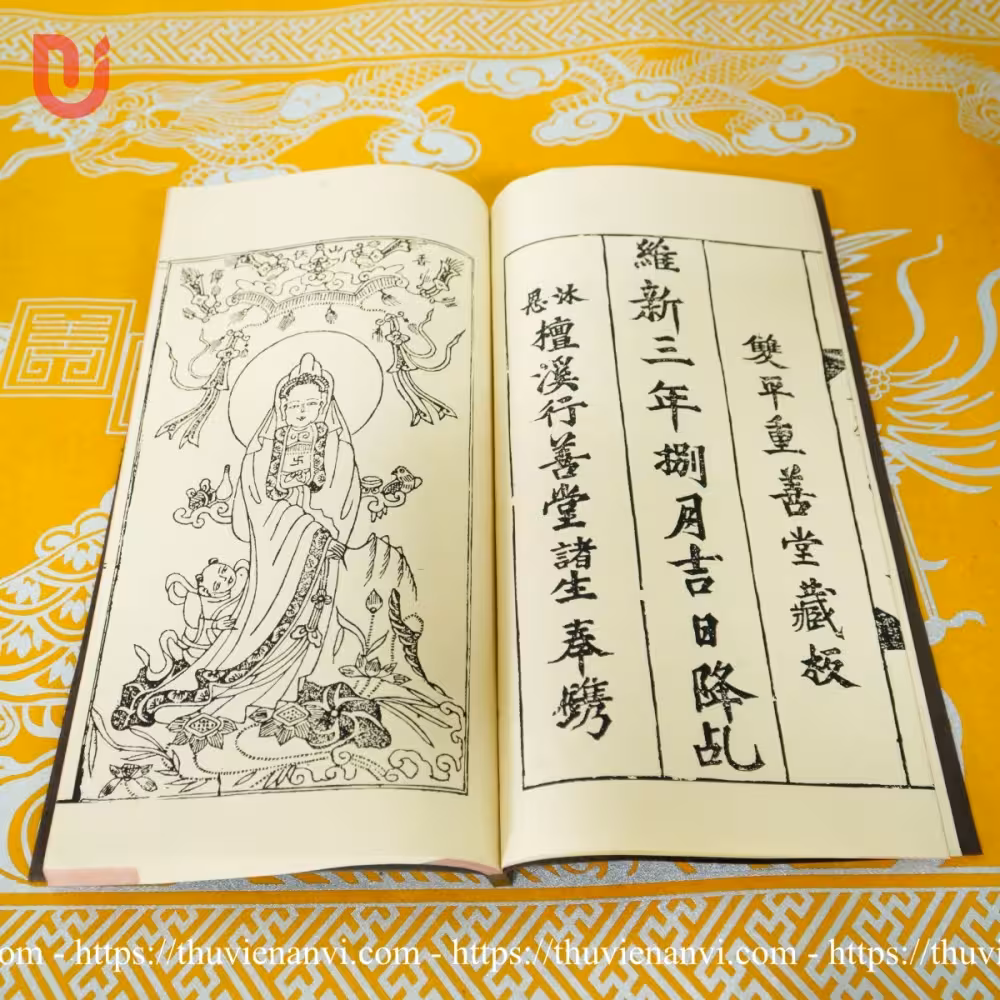 雙平重善堂藏板
維新三年捌月吉日降乩
沐恩檀溪行善堂諸生奉鐫
om - https://thuvienanvi.com - https://thuvienanvi.com - https://thuvi